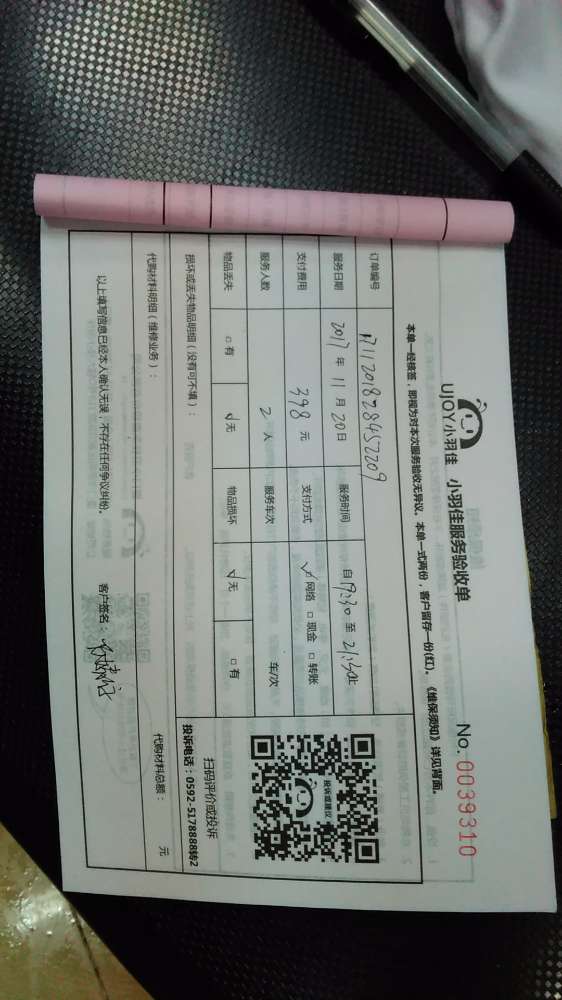 UJOY小羽佳 小羽佳服务验收单 No. 0039310
本单一经接签，即视为对本次服务验收无异议。本单一式两份，客户留存一份(红)。《维保须知》详见背面。
订单编号
服务日期 2017 年 11 月 20 日 服务时间 自 17:30 至 21:30止
支付费用 398 元 支付方式 √网络 □ 现金 □ 转账
服务人数 2 人 服务车次 车/次
物品丢失 □ 有 √无 物品损坏 √无 □ 有
损坏或丢失物品明细（没有可不填）：
代购材料明细（维修业务）： 代购材料总额： 元
以上填写信息已经本人确认无误，不存在任何争议纠纷。 客户签名：
投诉或建议
扫码评价或投诉
投诉电话：0592-5178888转2